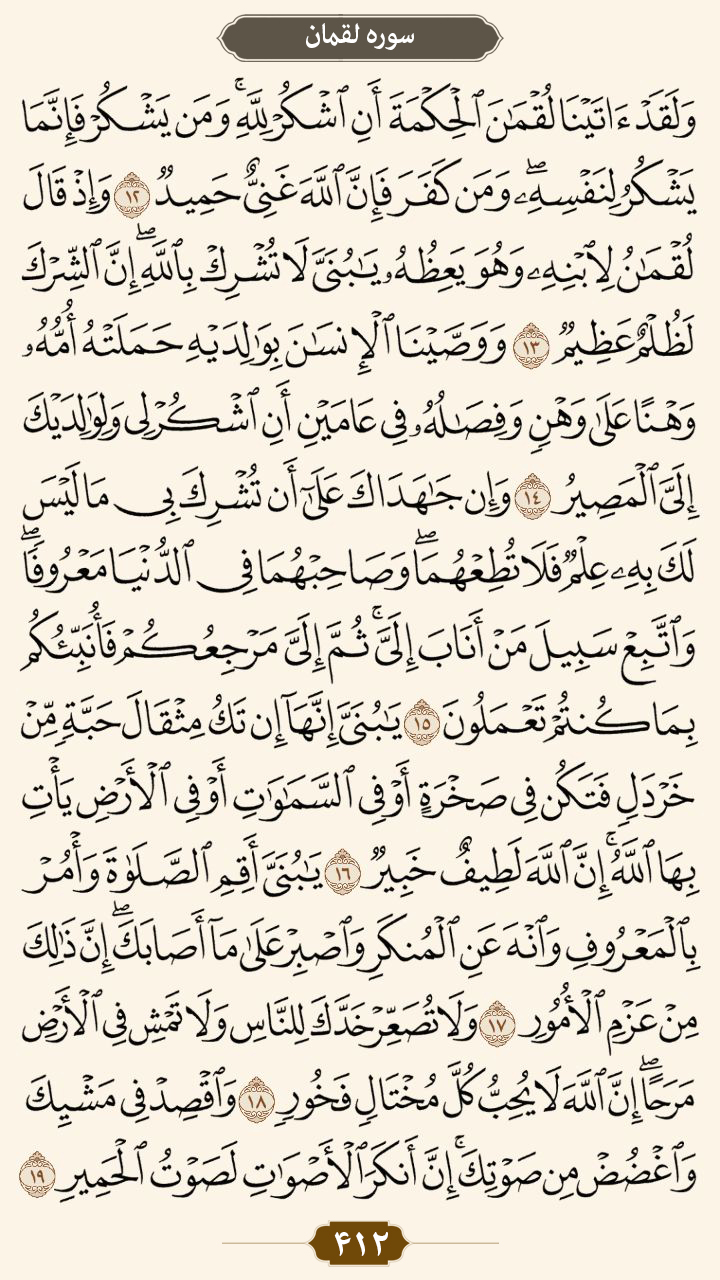 سوره لقمان
وَلَقَدْ ءَاتَيْنَا لُقْمَـٰنَ ٱلْحِكْمَةَ أَنِ ٱشْكُرْ لِلَّهِ ۚ وَمَن يَشْكُرْ فَإِنَّمَا
يَشْكُرُ لِنَفْسِهِۦ ۖ وَمَن كَفَرَ فَإِنَّ ٱللَّهَ غَنِىٌّ حَمِيدٌ ١٢ وَإِذْ قَالَ
لُقْمَـٰنُ لِٱبْنِهِۦ وَهُوَ يَعِظُهُۥ يَـٰبُنَىَّ لَا تُشْرِكْ بِٱللَّهِ ۖ إِنَّ ٱلشِّرْكَ
لَظُلْمٌ عَظِيمٌ ١٣ وَوَصَّيْنَا ٱلْإِنسَـٰنَ بِوَٰلِدَيْهِ حَمَلَتْهُ أُمُّهُۥ
وَهْنًا عَلَىٰ وَهْنٍ وَفِصَـٰلُهُۥ فِى عَامَيْنِ أَنِ ٱشْكُرْ لِى وَلِوَٰلِدَيْكَ
إِلَىَّ ٱلْمَصِيرُ ١٤ وَإِن جَـٰهَدَاكَ عَلَىٰٓ أَن تُشْرِكَ بِى مَا لَيْسَ
لَكَ بِهِۦ عِلْمٌ فَلَا تُطِعْهُمَا ۖ وَصَاحِبْهُمَا فِى ٱلدُّنْيَا مَعْرُوفًا ۖ
وَٱتَّبِعْ سَبِيلَ مَنْ أَنَابَ إِلَىَّ ۚ ثُمَّ إِلَىَّ مَرْجِعُكُمْ فَأُنَبِّئُكُم
بِمَا كُنتُمْ تَعْمَلُونَ ١٥ يَـٰبُنَىَّ إِنَّهَآ إِن تَكُ مِثْقَالَ حَبَّةٍ مِّنْ
خَرْدَلٍ فَتَكُن فِى صَخْرَةٍ أَوْ فِى ٱلسَّمَـٰوَٰتِ أَوْ فِى ٱلْأَرْضِ يَأْتِ
بِهَا ٱللَّهُ ۚ إِنَّ ٱللَّهَ لَطِيفٌ خَبِيرٌ ١٦ يَـٰبُنَىَّ أَقِمِ ٱلصَّلَوٰةَ وَأْمُرْ
بِٱلْمَعْرُوفِ وَٱنْهَ عَنِ ٱلْمُنكَرِ وَٱصْبِرْ عَلَىٰ مَآ أَصَابَكَ ۖ إِنَّ ذَٰلِكَ
مِنْ عَزْمِ ٱلْأُمُورِ ١٧ وَلَا تُصَعِّرْ خَدَّكَ لِلنَّاسِ وَلَا تَمْشِ فِى ٱلْأَرْضِ
مَرَحًا ۖ إِنَّ ٱللَّهَ لَا يُحِبُّ كُلَّ مُخْتَالٍ فَخُورٍ ١٨ وَٱقْصِدْ فِى مَشْيِكَ
وَٱغْضُضْ مِن صَوْتِكَ ۚ إِنَّ أَنكَرَ ٱلْأَصْوَٰتِ لَصَوْتُ ٱلْحَمِيرِ ١٩
۴۱۲